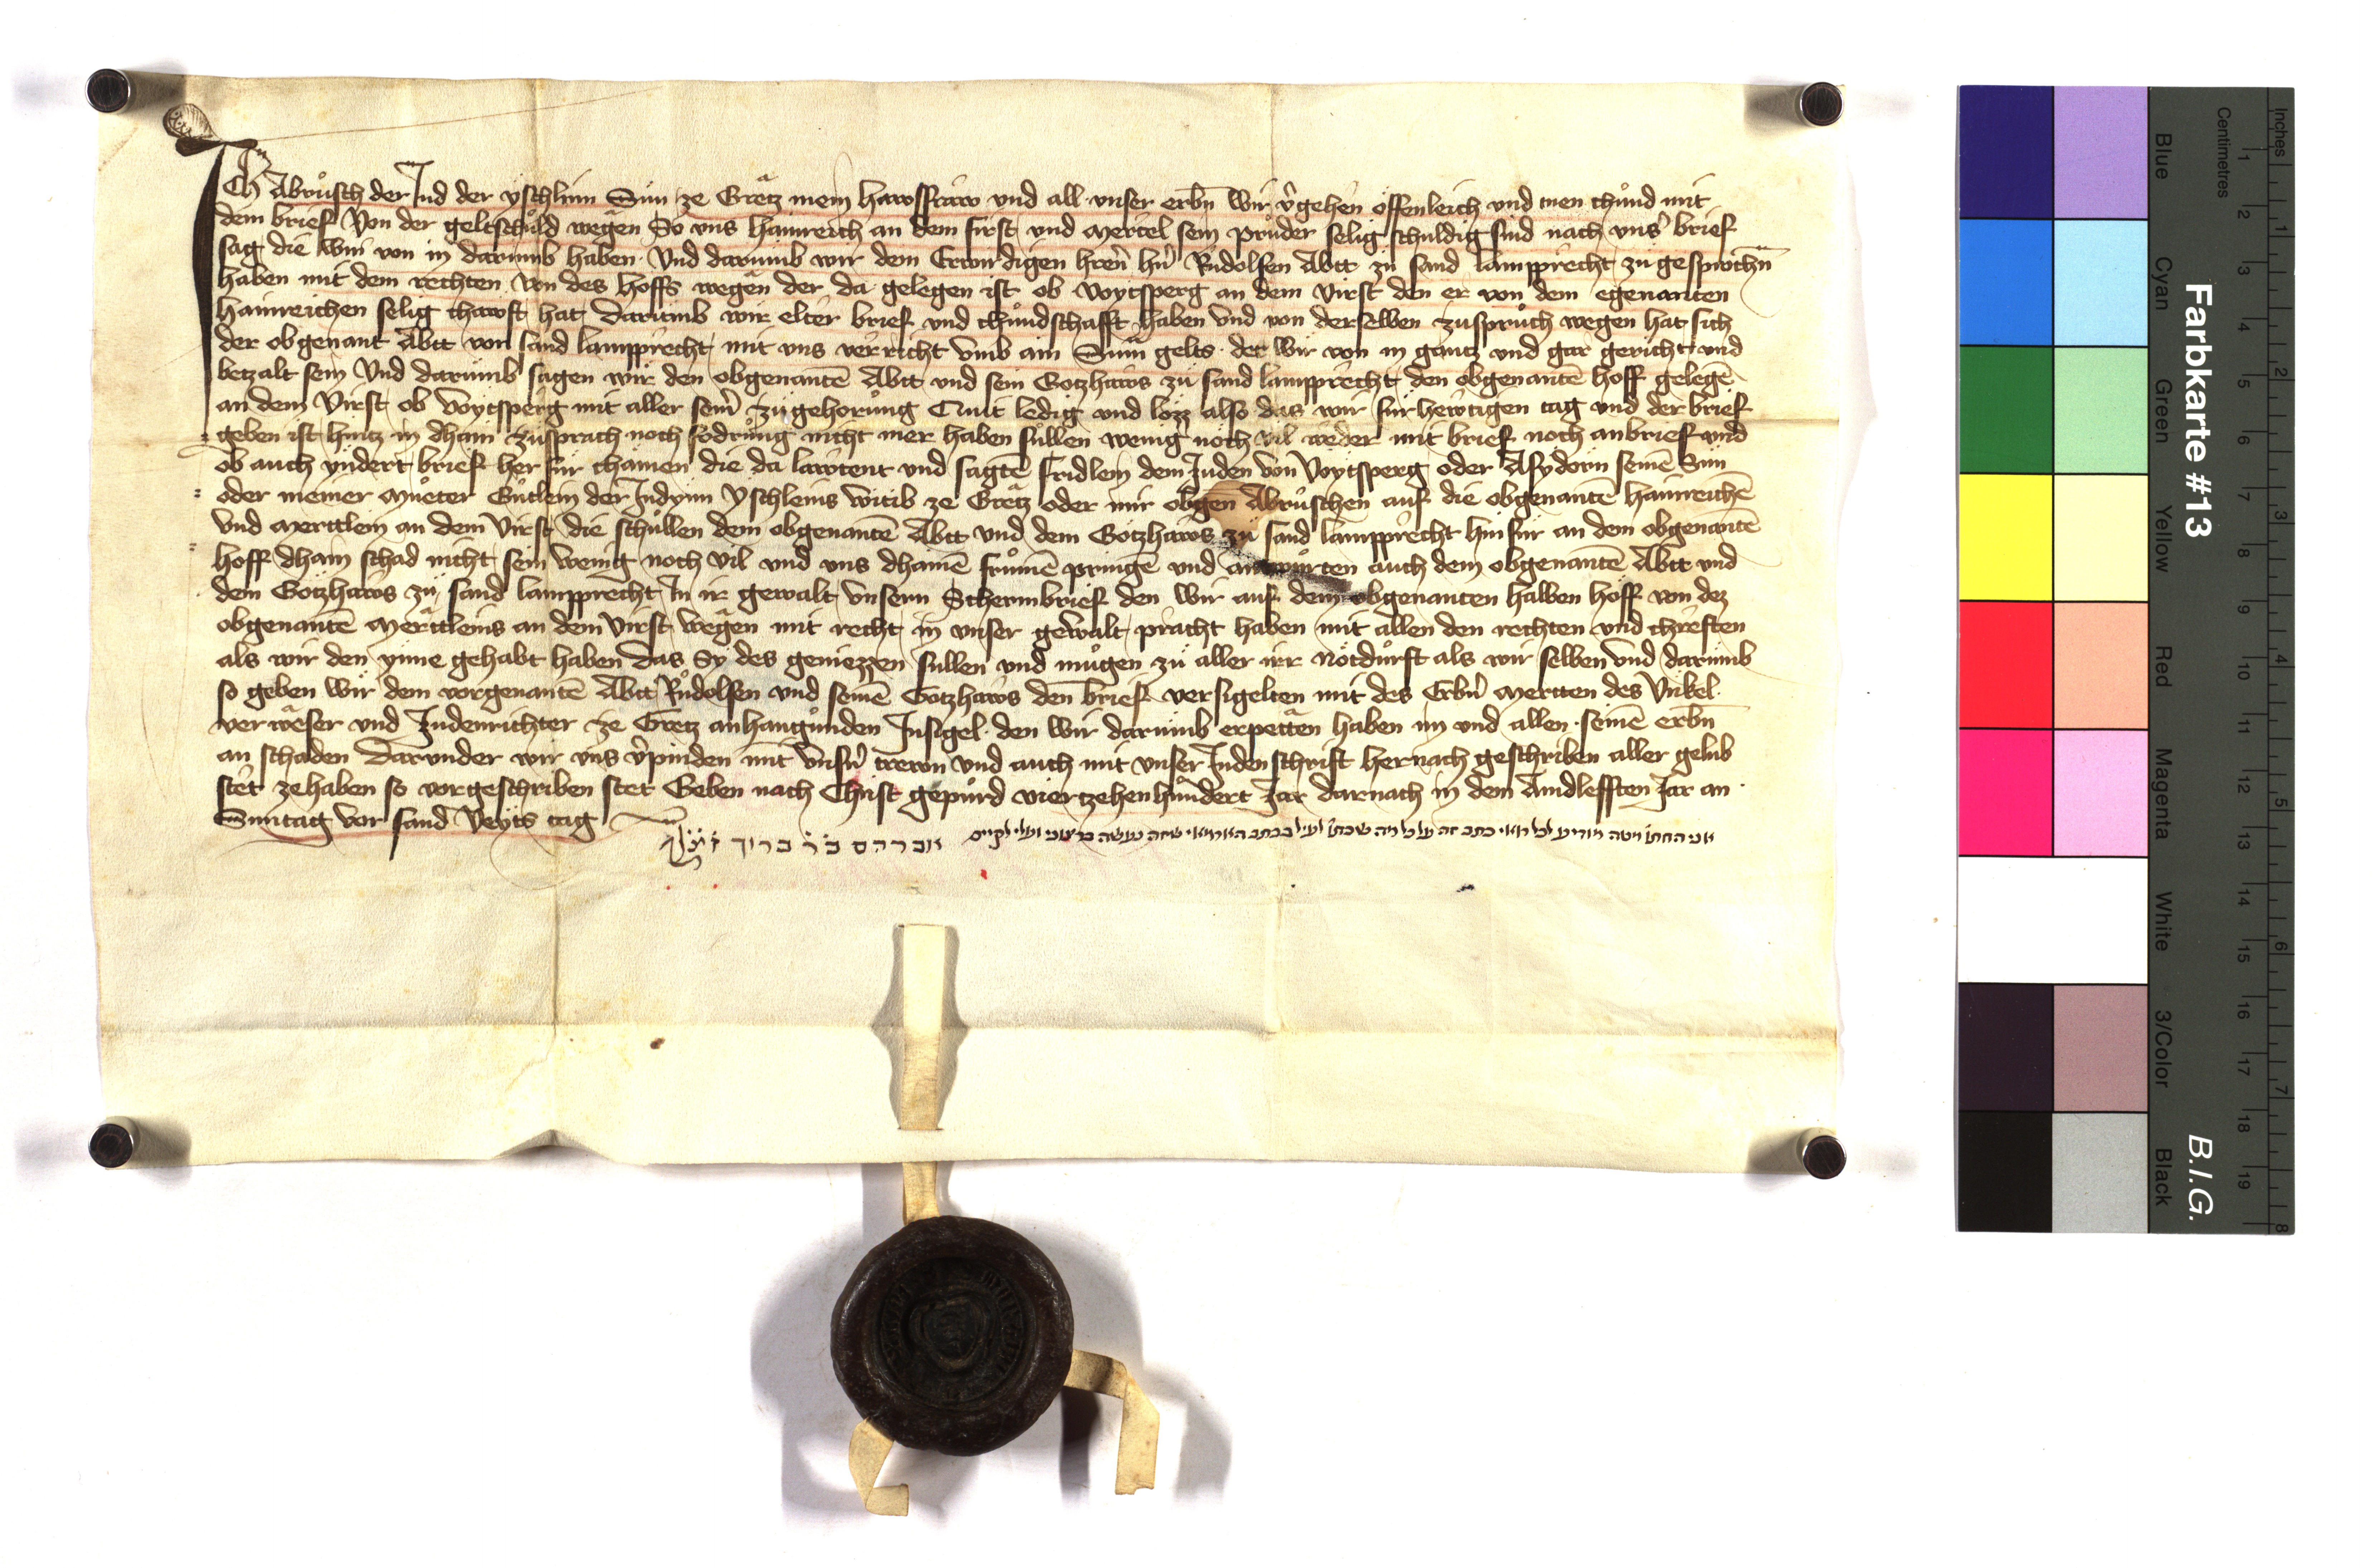 Ich Abrüsch der Jud der yschlinn Sun ze Gretz mein hawsfraw und all unser erbn wir vergehen offenleich und tuen chund mit
dem brief Von der geltschuld wegen So uns Hainreich an dem first und Mertel sein pruder selig schuldig sind nach unser brief
sag die wir von in darumb haben Und darumb wir dem Erwirdigen hren hn Rudolfen Abtt zu sand lampprecht zu gesprochn
haben mit dem rechten von des hoffs wegen der da gelegen ist ob Voytsperg an dem Virst den er von dem egenanten
Hainreichen selig chawft hat darumb wir elter brief und chundschafft haben und von derselben zuspruch wegen hat sich
der obgenant Abtt von sand lampprecht mit uns verricht umb ain Summ gelts der wir von in gantz und gar gericht und
betzalt sein Und darumb sagen wir den obgenanten Abtt und sein Gotzhaws zu sand lampprecht den obgenanten hoff gelegen
an dem Virst ob Voytsperg mit aller seiner zugehorung Quit ledig und lozz also das wir fur hewtigen tag und der brief
geben ist hintz in dhain zusprach noch fodrung nicht mer haben sullen wenig noch vil weder mit brief noch an brief und
ob auch yndert brief her fur chamen die da lawtent und sagten fridlein dem Juden von Voytsperg oder Asydorin seinem Sun
oder meiner Mueter Gutlein der Judynn yschleins witib ze Gretz oder mir obgen Abruschen auf die obgenanten hainreichen
und Merttlein an dem Virst die schullen dem obgenanten Abtt und dem Gotzhaws zu sand lampprecht hin fur an dem obgenanten
hoff dhain schad nicht sein wenig noch vil und uns dhainen frumen pringen und antwurten auch dem obgenanten Abtt und
dem Gotzhaws zu sand lampprecht In ir gewalt unsern Schermbrief den wir auf dem obgenanten halben hoff von dez
obgenanten Merttleins an dem Virst wegen mit recht in unser gewalt pracht haben mit allen den rechten und chreften
als wir den ynne gehabt haben das Sy des geniezzen sullen und mugen zu aller irr notdurft als wir selben und darumb
so geben wir dem vorgenanten Abtt Rudolfen und seinem Gotzhaws den brief versigelten mit des Erbern Mertten des Unkel
verweser und Judenrichter ze Gretz anhangunden Insigel den wir darumb erpetten haben im und allen seinen erbn
an schaden darunder wir uns verpinden mit unsern trewn und auch mit unser Juden schrift hernach geschriben aller gelub
stet zehaben so vorgeschriben stet Geben nach Christ gepurd viertzehenhundert Jar darnach in dem Aindlefften Jar an
Suntag vor sand Veyts tag
אני החתום מטה
אברהם בר ברוך
Farbkarte #13
B.I.G.
Inches
Centimetres
1 2 3 4 5 6 7 8
1 2 3 4 5 6 7 8 9 10 11 12 13 14 15 16 17 18 19
Blue
Cyan
Green
Yellow
Red
Magenta
White
3/Color
Black